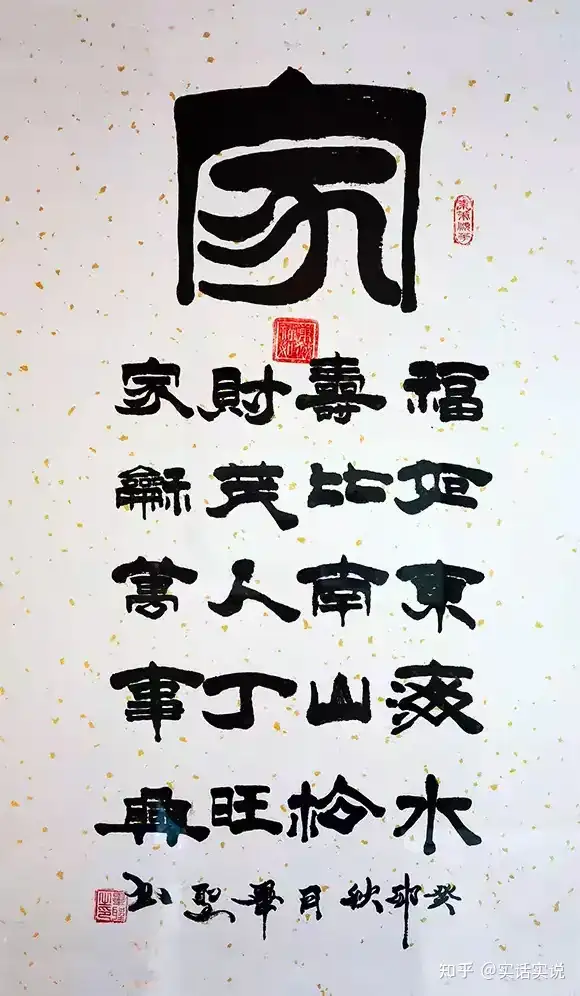 家
福如東海水
壽比南山松
財英人丁旺
家龢萬事興
癸卯秋月華聖书
知乎 @实话实说